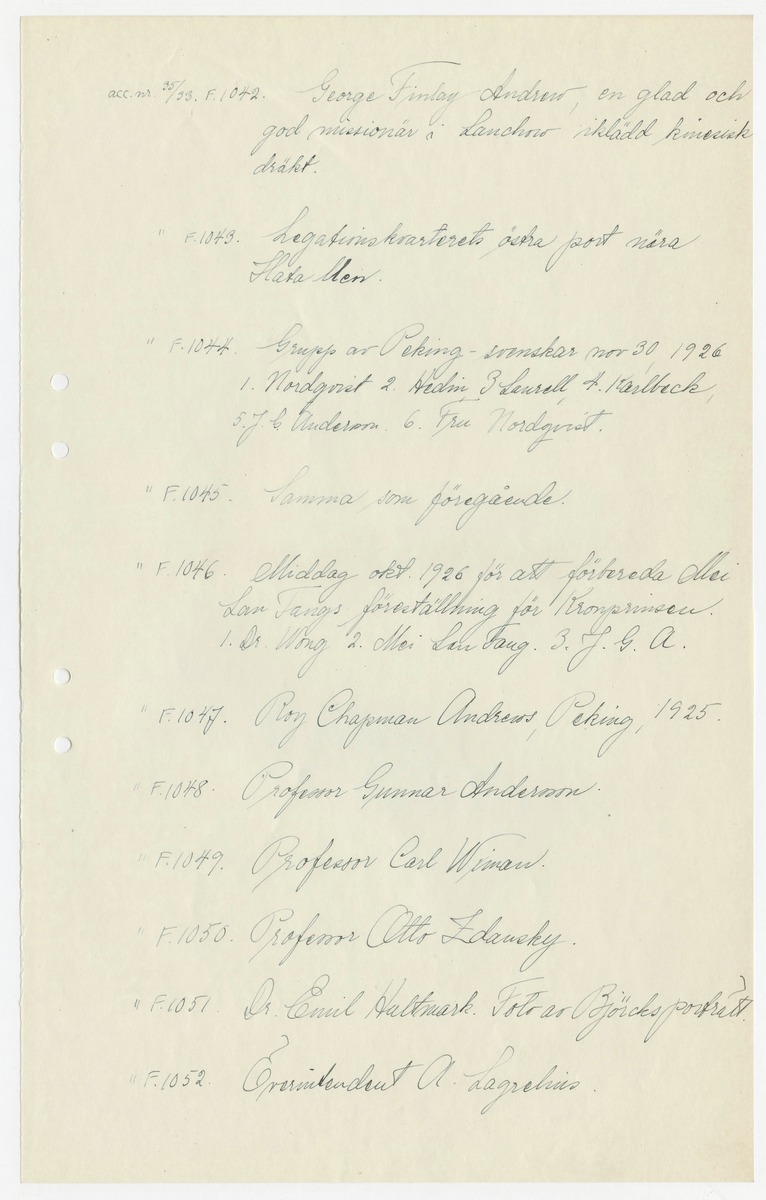 acc.nr. 35/33. F.1042. George Finlay Andrew, en glad och
god missionär i Lanchow iklädd kinesisk
dräkt.
" F.1043. Legationskvarterets östra port nära
Hata Men.
" F.1044. Grupp av Peking-svenskar nov 30, 1926
1. Nordqvist 2. Hedin, 3 Laurell, 4. Karlbeck,
5. J. G. Andersson. 6. Fru Nordqvist.
" F.1045. Samma som föregående.
" F.1046. Middag okt. 1926 för att förbereda Mei
Lan Fangs föreställning för Kronprinsen.
1. Dr. Wong 2. Mei Lan Fang. 3. J. G. A.
" F.1047. Roy Chapman Andrews, Peking, 1925.
" F.1048. Professor Gunnar Andersson.
" F.1049. Professor Carl Wiman.
" F.1050. Professor Otto Zdansky.
" F.1051. Dr. Emil Hultmark. Foto av Björcks porträtt.
" F.1052. Överintendent A. Lagrelius.